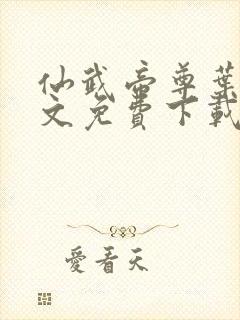 仙武帝尊葉
文免費下載
愛看天